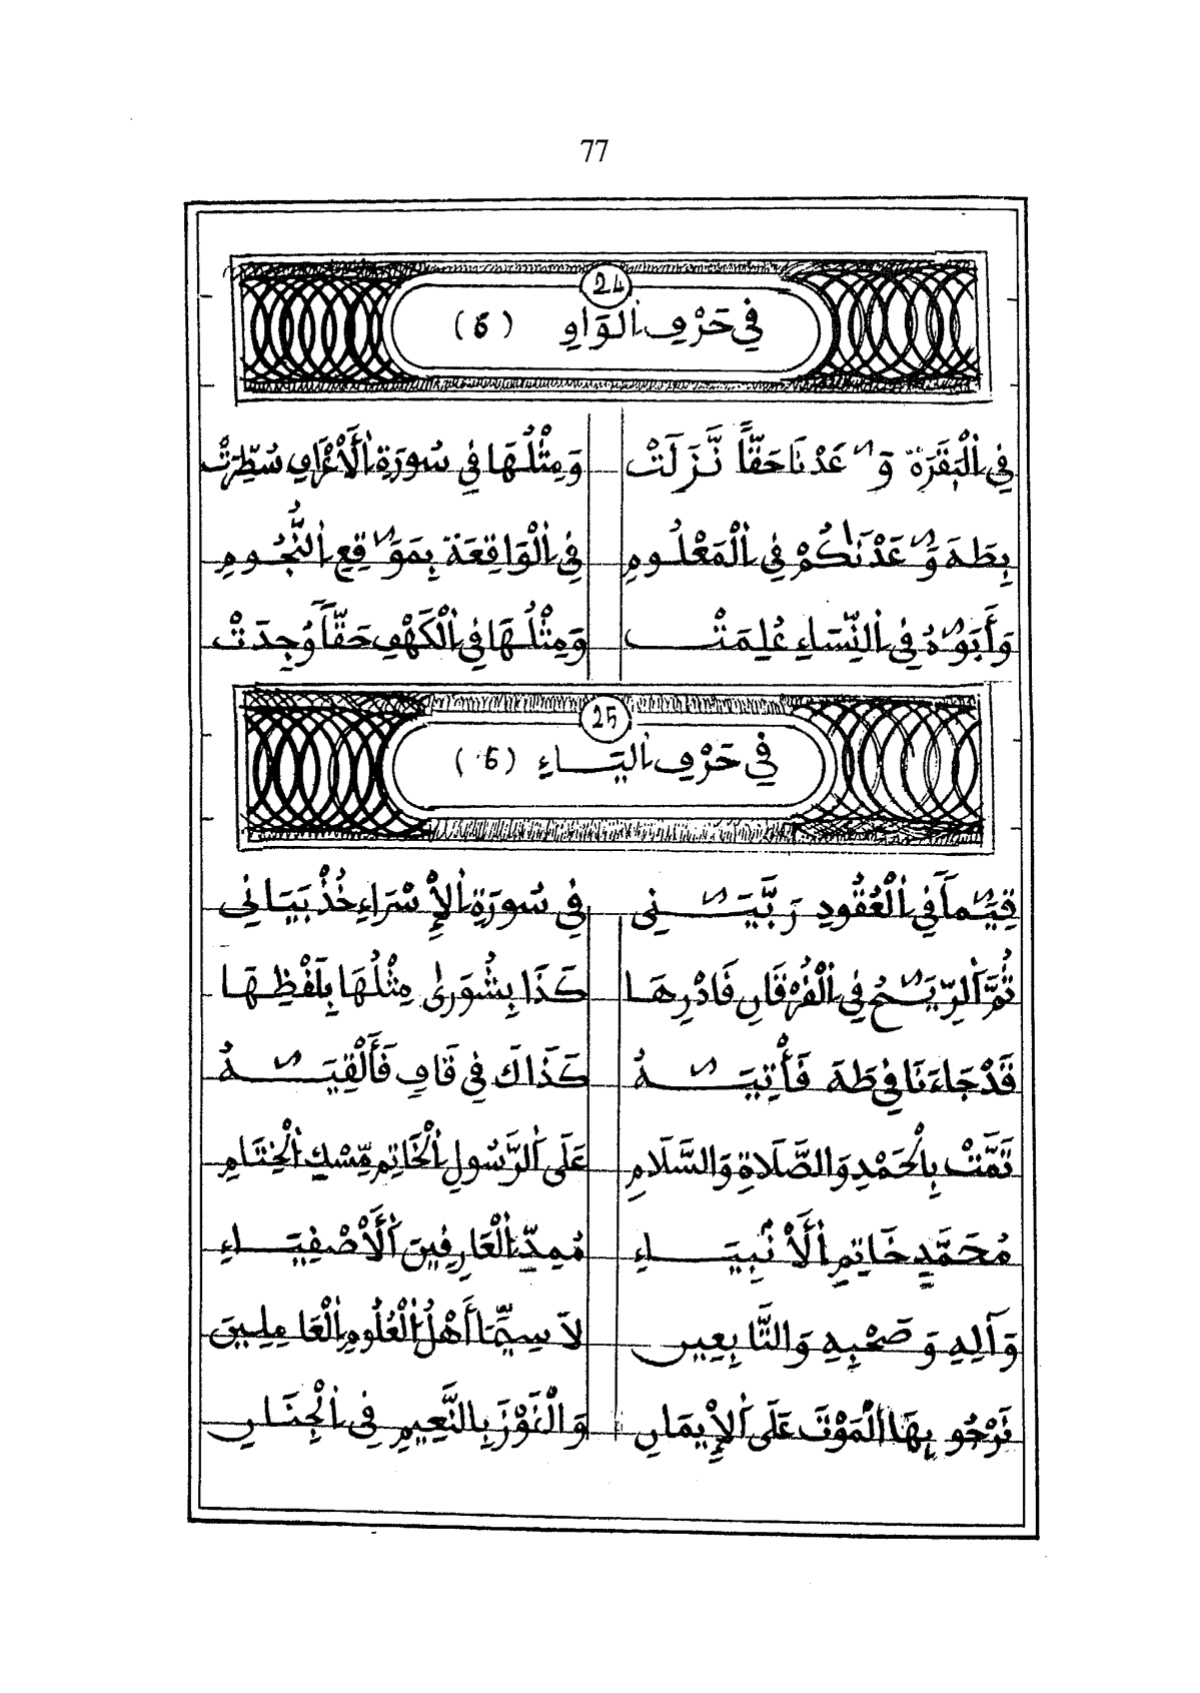 77
24
في حَرْفِ الوَاوِ (6)
فِي الْبَقَرَةِ وَعَدْنَا حَقّاً نَّزَلَتْ وَمِثْلُهَا فِي سُورَةِ الْأَعْرَافِ سُطِّرَتْ
بِطَهَ وَعَدْنَاكُمْ فِي الْمَعْلُومِ فِي الْوَاقِعَةِ بِمَوَاقِعِ النُّجُومِ
وَأَبَوَاهُ فِي النِّسَاءِ عُلِمَتْ وَمِثْلُهَا فِي الْكَهْفِ حَقّاً وُجِدَتْ
25
فِي حَرْفِ اليَـاءِ (6)
قِيَـٰماً فِي الْعُقُودِ رَبَّيَـٰنِي فِي سُورَةِ الْإِسْرَاءِ خُذْ بَيَانِي
ثُمَّ الرِّيَـٰحُ فِي الْفُرْقَانِ فَادْرِهَا كَذَا بِشُورَىٰ مِثْلُهَا بِلَفْظِهَا
قَدْ جَاءَنَا فِي طَهَ فَأْتِيَـٰهُ كَذَاكَ فِي قَافِ فَأَلْقِيَـٰهُ
تَمَّتْ بِالْحَمْدِ وَالصَّلَاةِ وَالسَّلَامِ عَلَى الرَّسُولِ الْخَاتِمِ مِّسْكِ الْخِتَامِ
مُحَمَّدٍ خَاتِمِ الْأَنْبِيَـاءِ مُمِدِّ الْعَارِفِينَ الْأَصْفِيَـاءِ
وَآلِهِ وَصَحْبِهِ وَالتَّابِعِين لَا سِيَّمَا أَهْلُ الْعُلُومِ الْعَامِلِينَ
نَرْجُو بِهَا الْمَوْتَ عَلَى الْإِيمَانِ وَالْفَوْزَ بِالنَّعِيمِ فِي الْجِنَـانِ